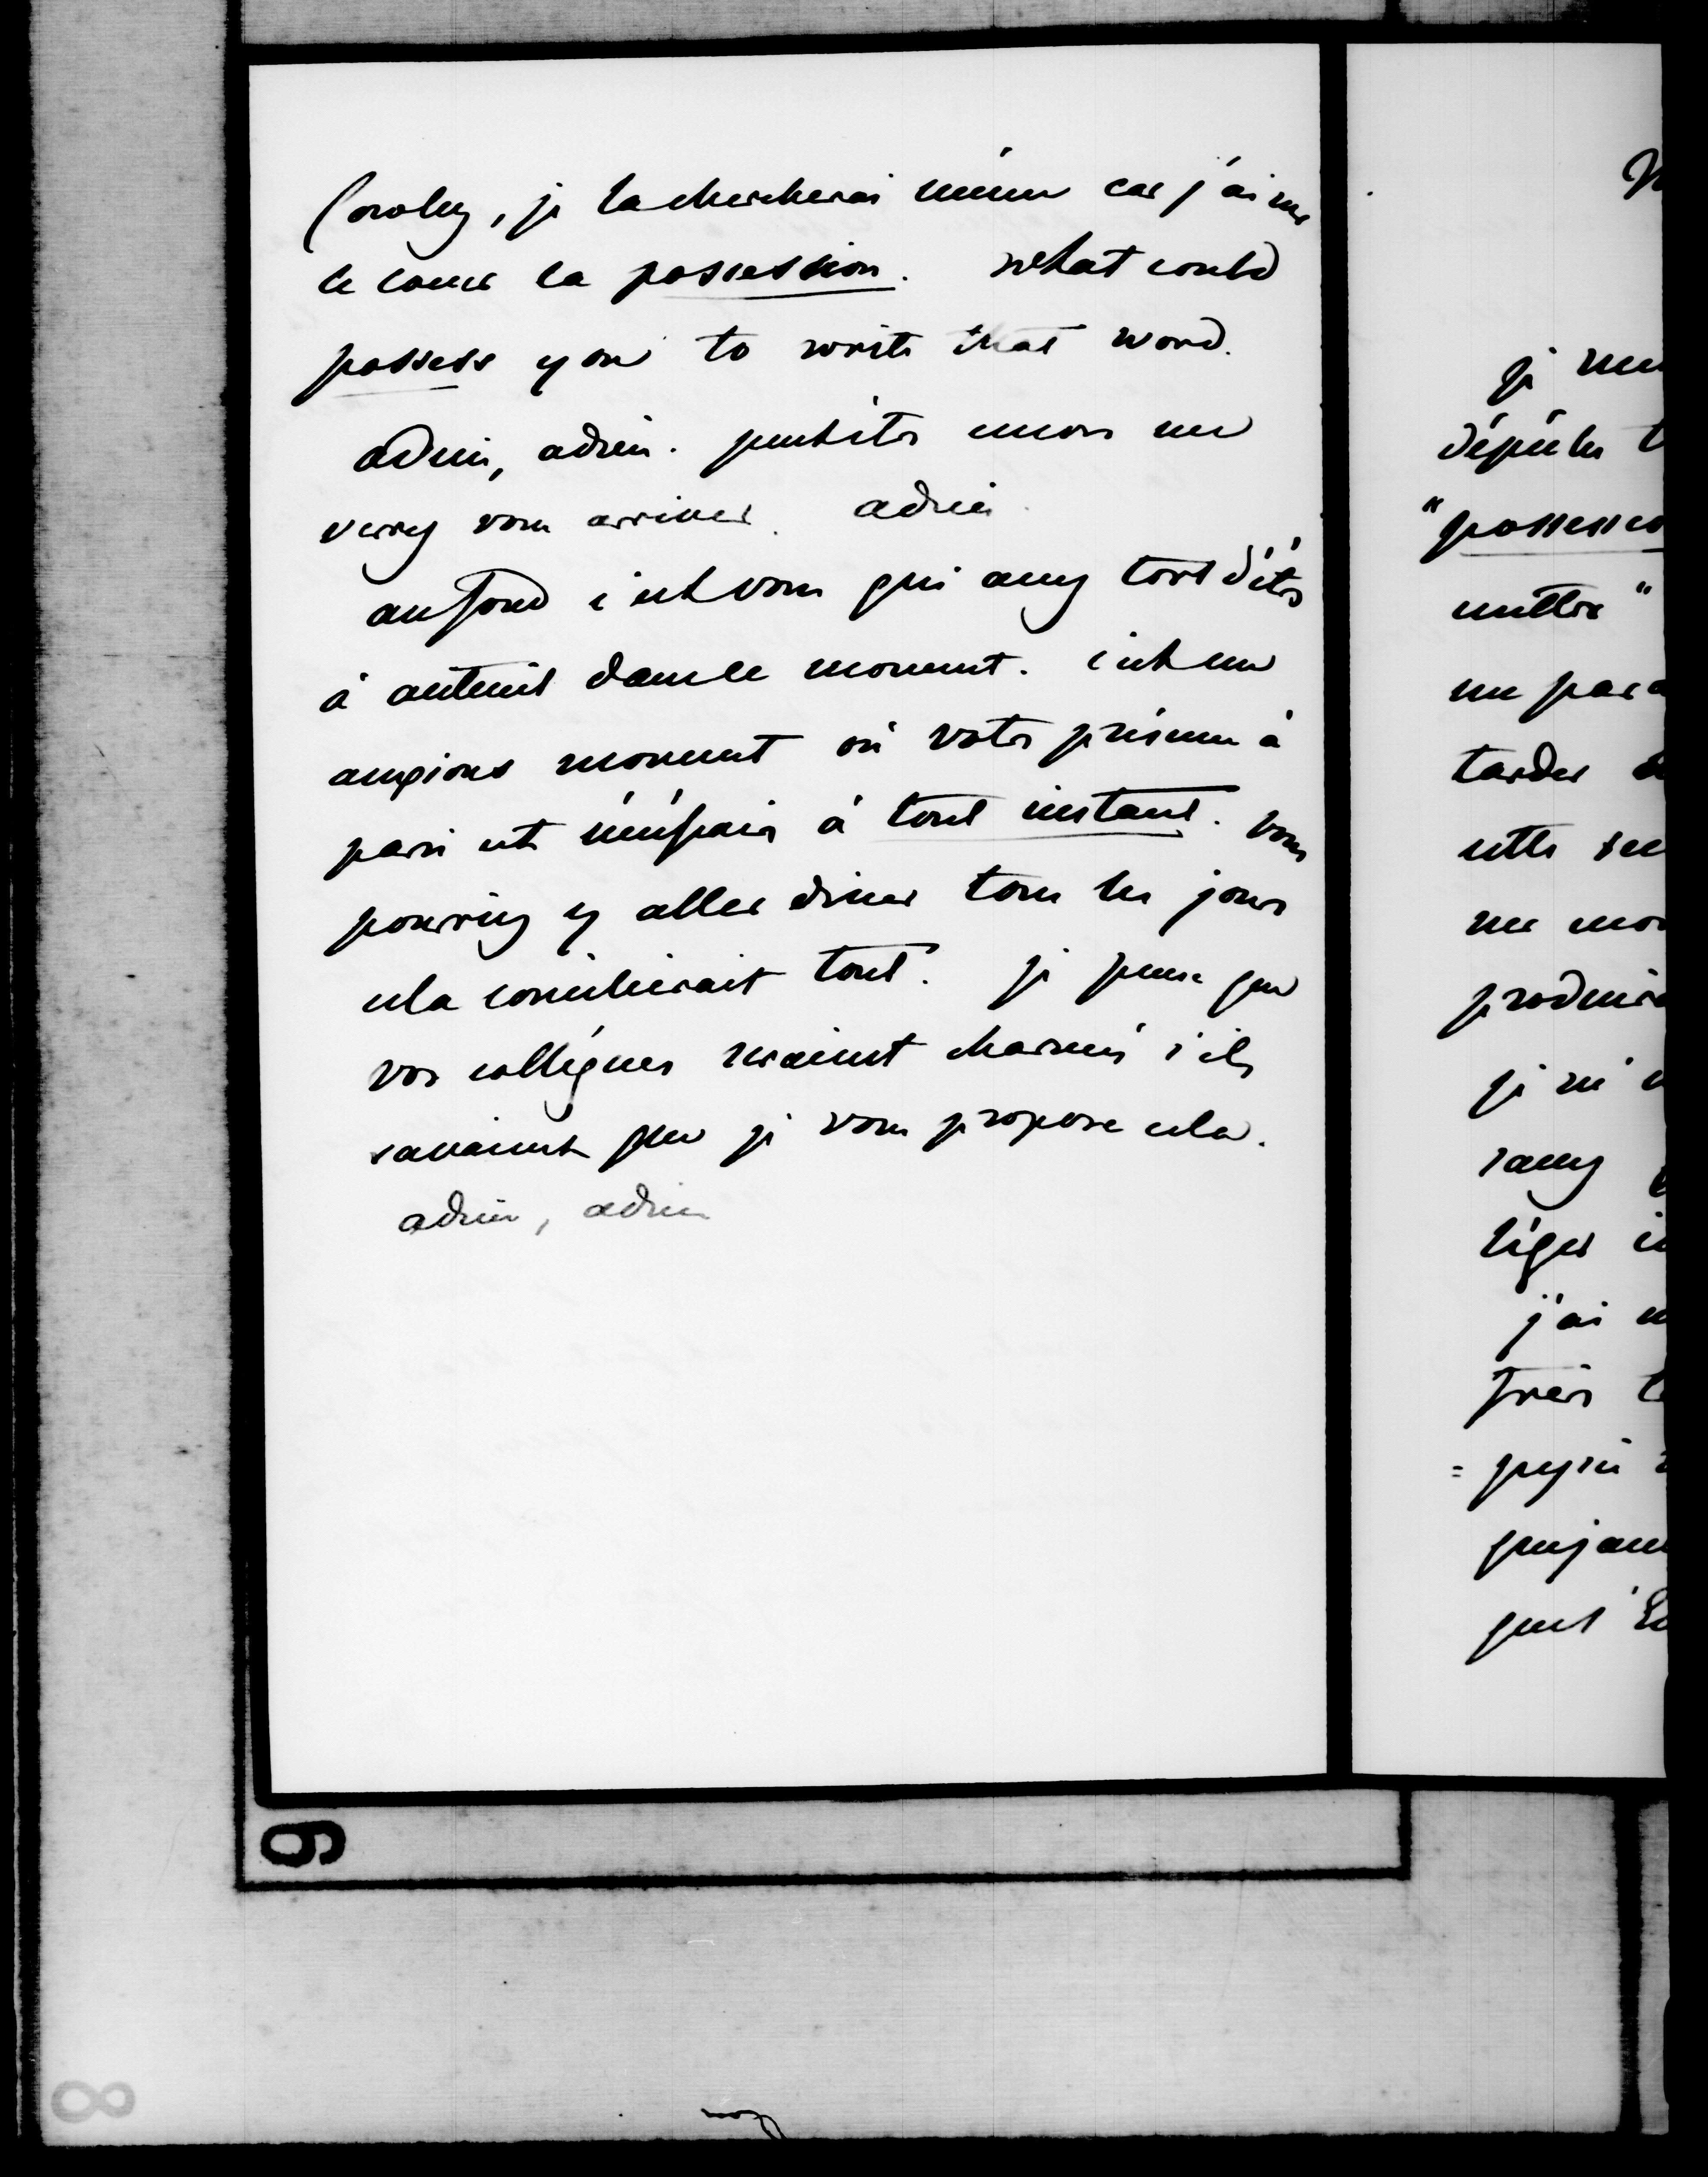 je la chercherai même car j'aime
le coeur la possession. What could
possess you to write that word.
adieu, adieu. peutêtre encore me
verrez vous arriver. adieu
au fond c'est vous qui avez tort d'être
à auteuil dans ce moment. c'est un
moment où votre présence à
paris est à tout instant. vous
pourriez y aller diner tous les jours
cela concilierait tout. je pense que
vos collègues seraient charmés s'ils
savaient que je vous propose cela.
adieu, adieu
9
8
je
dépêche
"possession
mettre"
me para
tarder
cette
me
produire
je ne
savez
léger
j'ai
très